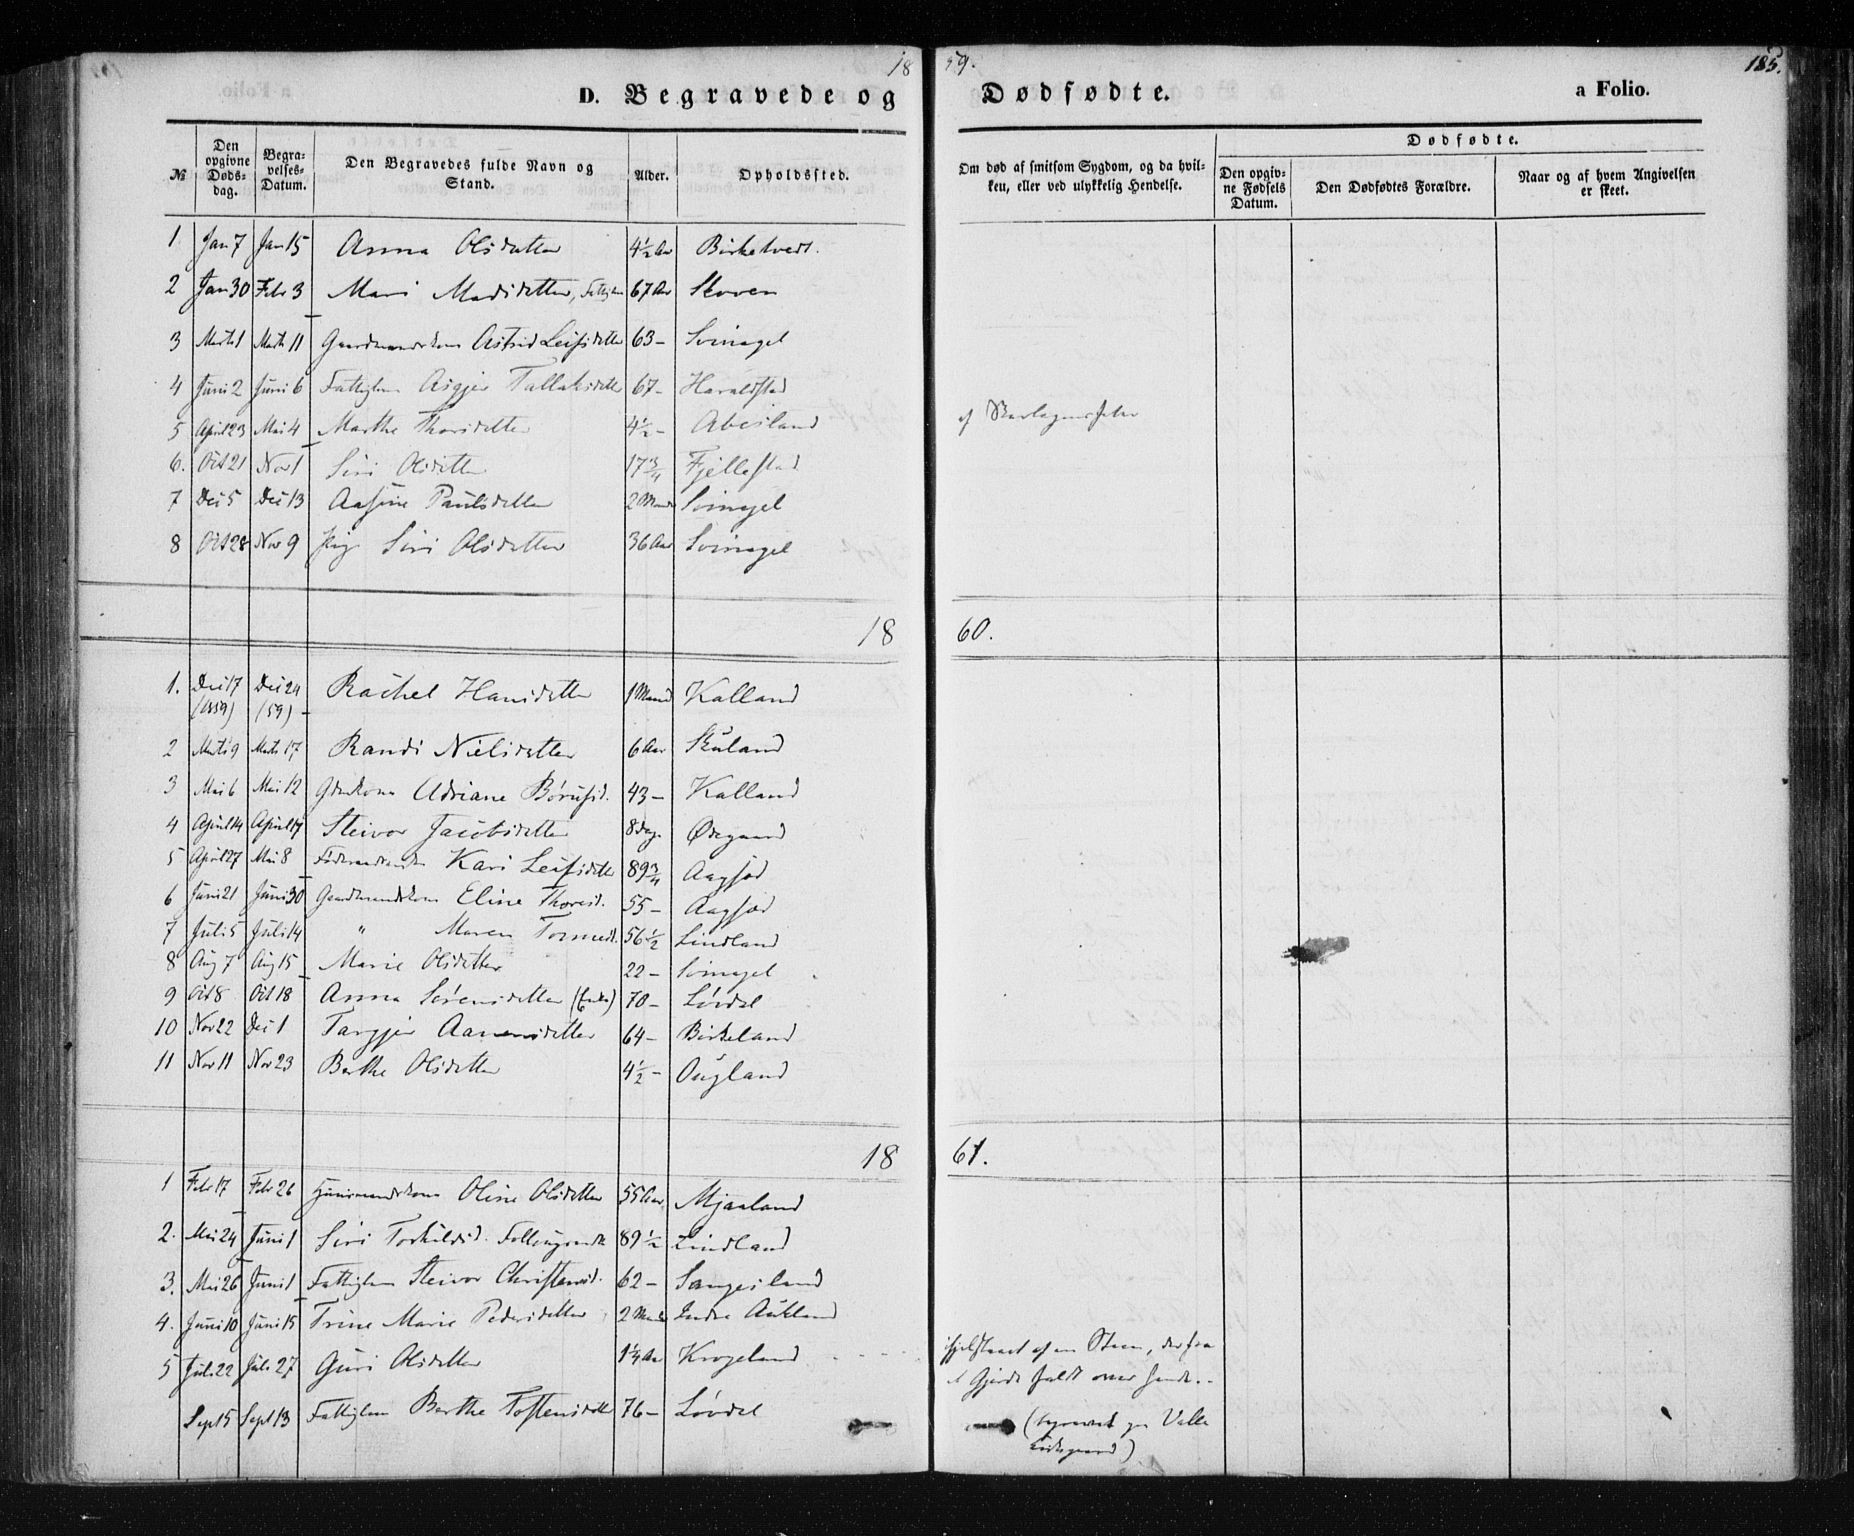 18 59. 185.
D. Begravede og Dødfødte. a Folio.
№ Den opgivne Døds-dag. Begra-velses-Datum. Den Begravedes fulde Navn og Stand. Alder. Opholdssted. Om død af smitsom Sygdom, og da hvil-ken, eller ved ulykkelig Hendelse. Dødfødte. Den opgiv-ne Fødsels Datum. Den Dødfødtes Forældre. Naar og af hvem Angivelsen er skeet.
1. Jan 7 Jan 15 Anna Olsdatter 4½ Aar Birketvedt.
2 Jan 30 Febr 3 Mari Madsdatter, Fattiglem 67 Aar Skoven
3 Marts 1 Marts 11 Gaardmandskone Astrid Leifsdatter 63 - Svinagel
4 Juni 2 Juni 6 Fattiglem Asgjer Tallaksdatter 67 - Haraldstad
5 April 23 Mai 4 Marthe Thorsdatter 4½ - Abesland af Skarlagensfeber
6. Oct 21 Nov 1 Siri Olsdatter 17¾ Fjellestad
7 Dec 5 Dec 13 Aasine Paulsdatter 2 Maan Svinagel
8 Oct 28 Nov 9 Pig Siri Olsdatter 36 Aar Svinagel
18 60.
1. Dec 17 (1859) Dec 24 (59) Rachel Hansdatter 1 Maand Kalland
2 Marts 9 Marts 17 Randi Nielsdatter 6 Aar Skuland
3 Mai 6 Mai 12 Gmdkone Adriane Børufsd. 43 - Kalland
4 April 14 April 17 Steivor Jacobsdatter 8 Dag. Ødegaard
5 April 27 Mai 8 Kari Leifsdatter 89¾ Aagsod
6 Juni 21 Juni 30 Gaardmandskone Eline Thoresd. 55 - Aagsod
7 Juli 5 Juli 14 " Maren Tormodsd. 56½ Lindland
8 Aug 7 Aug 15 Marie Olsdatter 22 - Svinagel
9 Oct 8 Oct 18 Anna Sørensdatter (Enke) 70 - Løvdal
10 Nov 22 Dec 1 Targjer Aanensdatter 64 - Birkeland
11 Nov 11 Nov 23 Berthe Olsdatter 4½ - Øugland
18 61.
1 Febr 17 Febr 26 Huusmandskone Oline Olsdatter 55 Aar Mjaaland
2. Mai 24 Juni 1 Siri Torkildsd. 89½ Lindland
3. Mai 26 Juni 1 Fattiglem Steivor Christensd. 62 - Sangesland
4. Juni 10 Juni 15 Trine Marie Pedersdatter 2 Maan Indre Aukland
5 Juli 22 Juli 27 Guri Olsdatter 1¼ Aar Krogeland ihjelslaaet af en Steen, der fra
et Gjerde faldt over hende. -
Sept 5 Sept 13 Fattiglem Berthe Tostensdatter 76 - Løvdal (begravet paa Valle
Kirkegaard)